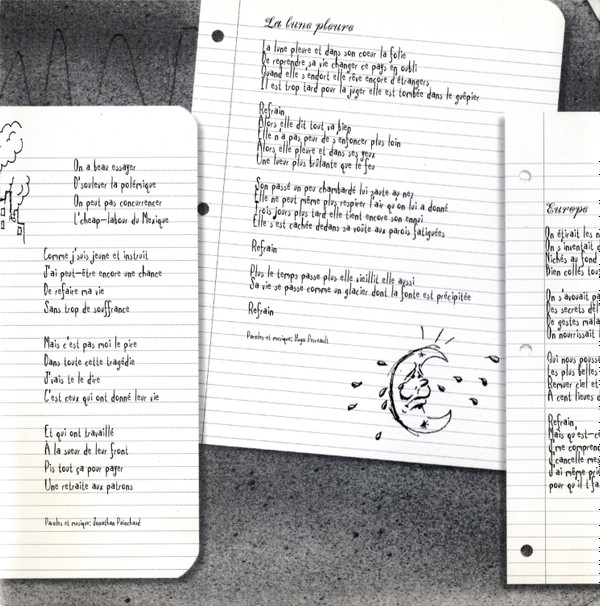 On a beau essayer
D'soulever la polémique
On peut pas concurrencer
L'cheap-labour du Mexique
Comme j'suis jeune et instruit
J'ai peut-être encore une chance
De refaire ma vie
Sans trop de souffrance
Mais c'est pas moi le pire
Dans toute cette tragédie
J'vais te le dire
C'est ceux qui ont donné leur vie
Et qui ont travaillé
À la sueur de leur front
Pis tout ça pour payer
Une retraite aux patrons
Paroles et musique: Jonathan Painchaud
La lune pleure
La lune pleure et dans son coeur la folie
De reprendre sa vie changer ce pays en oubli
Quand elle s'endort elle rêve encore d'étrangers
Il est trop tard pour la juger elle est tombée dans le guêpier
Refrain
Alors elle dit tout va bien
Elle n'a pas peur de s'enfoncer plus loin
Alors elle pleure et dans ses yeux
Une lueur plus brûlante que le feu
Son passé un peu chambardé lui saute au nez
Elle ne peut même plus respirer l'air qu'on lui a donné
Trois jours plus tard elle tient encore son ennui
Elle s'est cachée dedans sa voûte aux parois fatiguées
Refrain
Plus le temps passe plus elle vieillit elle aussi
Sa vie se passe comme un glacier dont la fonte est précipitée
Refrain
Paroles et musique: Hugo Perreault
Europe
On étirait les
On s'inventait
Nichés au fond
Bien collés
On s'avouait
Des secrets
De gestes
On nourrissait
Qui nous
Les plus belles
Remuer ciel et
À cent lieues
Refrain
Mais qu'est-
J'me
J'cancelle mes
J'ai même
pour qu'il